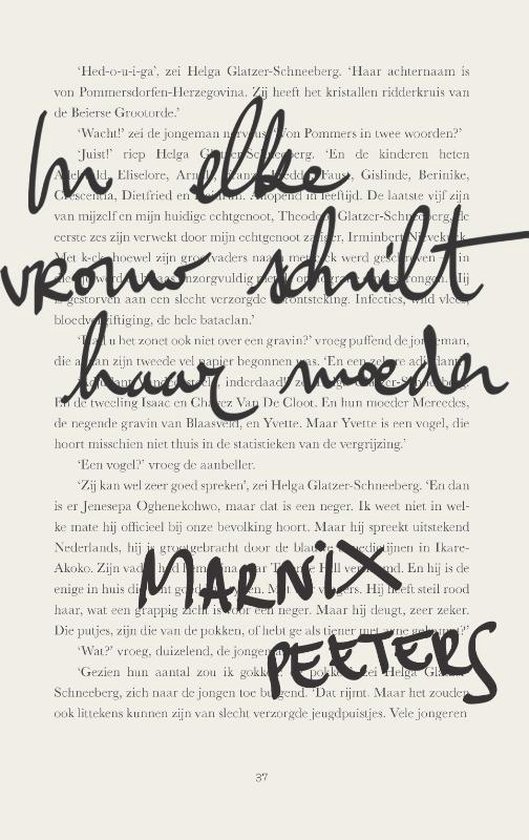 In elke
vrouw schuilt
haar moeder
MARNIX
PEETERS
'Hed-o-u-i-ga', zei Helga Glatzer-Schneeberg. 'Haar achternaam is
von Pommersdorfen-Herzegovina. Zij heeft het kristallen ridderkruis van
de Beierse Grootorde.'
'Wacht!' zei de jongeman nerveus. 'Von Pommers in twee woorden?'
'Juist!' riep Helga Glatzer-Schneeberg. 'En de kinderen heten
Eliselore, Gislinde, Berinike,
Dietfried en Aflopend in leeftijd. De laatste vijf zijn
van mijzelf en mijn huidige echtgenoot, Theodor Glatzer-Schneeberg, de
eerste zes zijn verwekt door mijn echtgenoot zaliger, Irminbert
Met k-c-k, hoewel zijn grootvaders naam met werd geschreven in
Hij
is gestorven aan een slecht verzorgde Infecties, wild vlees,
bloedvergiftiging, de hele bataclan.'
u het zonet ook niet over een gravin?' vroeg puffend de jongeman,
die al aan zijn tweede vel papier begonnen was. 'En een zekere
inderdaad,' zei
En de tweeling Isaac en Chavez Van De Cloot. En hun moeder Mercedes,
de negende gravin van Blaasveld, en Yvette. Maar Yvette is een vogel, die
hoort misschien niet thuis in de statistieken van de vergrijzing.'
'Een vogel?' vroeg de aanbeller.
'Zij kan wel zeer goed spreken', zei Helga Glatzer-Schneeberg. 'En dan
is er Jenesepa Oghenekohwo, maar dat is een neger. Ik weet niet in wel-
ke mate hij officieel bij onze bevolking hoort. Maar hij spreekt uitstekend
Nederlands, hij is grootgebracht door de blauwe benedictijnen in Ikare-
Akoko. Zijn vader had hem naar Hill vernoemd. En hij is de
enige in huis die Hij heeft steil rood
haar, wat een grappig zicht is voor een neger. Maar hij deugt, zeer zeker.
Die putjes, zijn die van de pokken, of hebt ge als tiener met
'Wat?' vroeg, duizelend, de jongeman.
'Gezien hun aantal zou ik gokken op pokken,' zei Helga Glatzer-
Schneeberg, zich naar de jongen toe buigend. 'Dat rijmt. Maar het zouden
ook littekens kunnen zijn van slecht verzorgde jeugdpuistjes. Vele jongeren
37